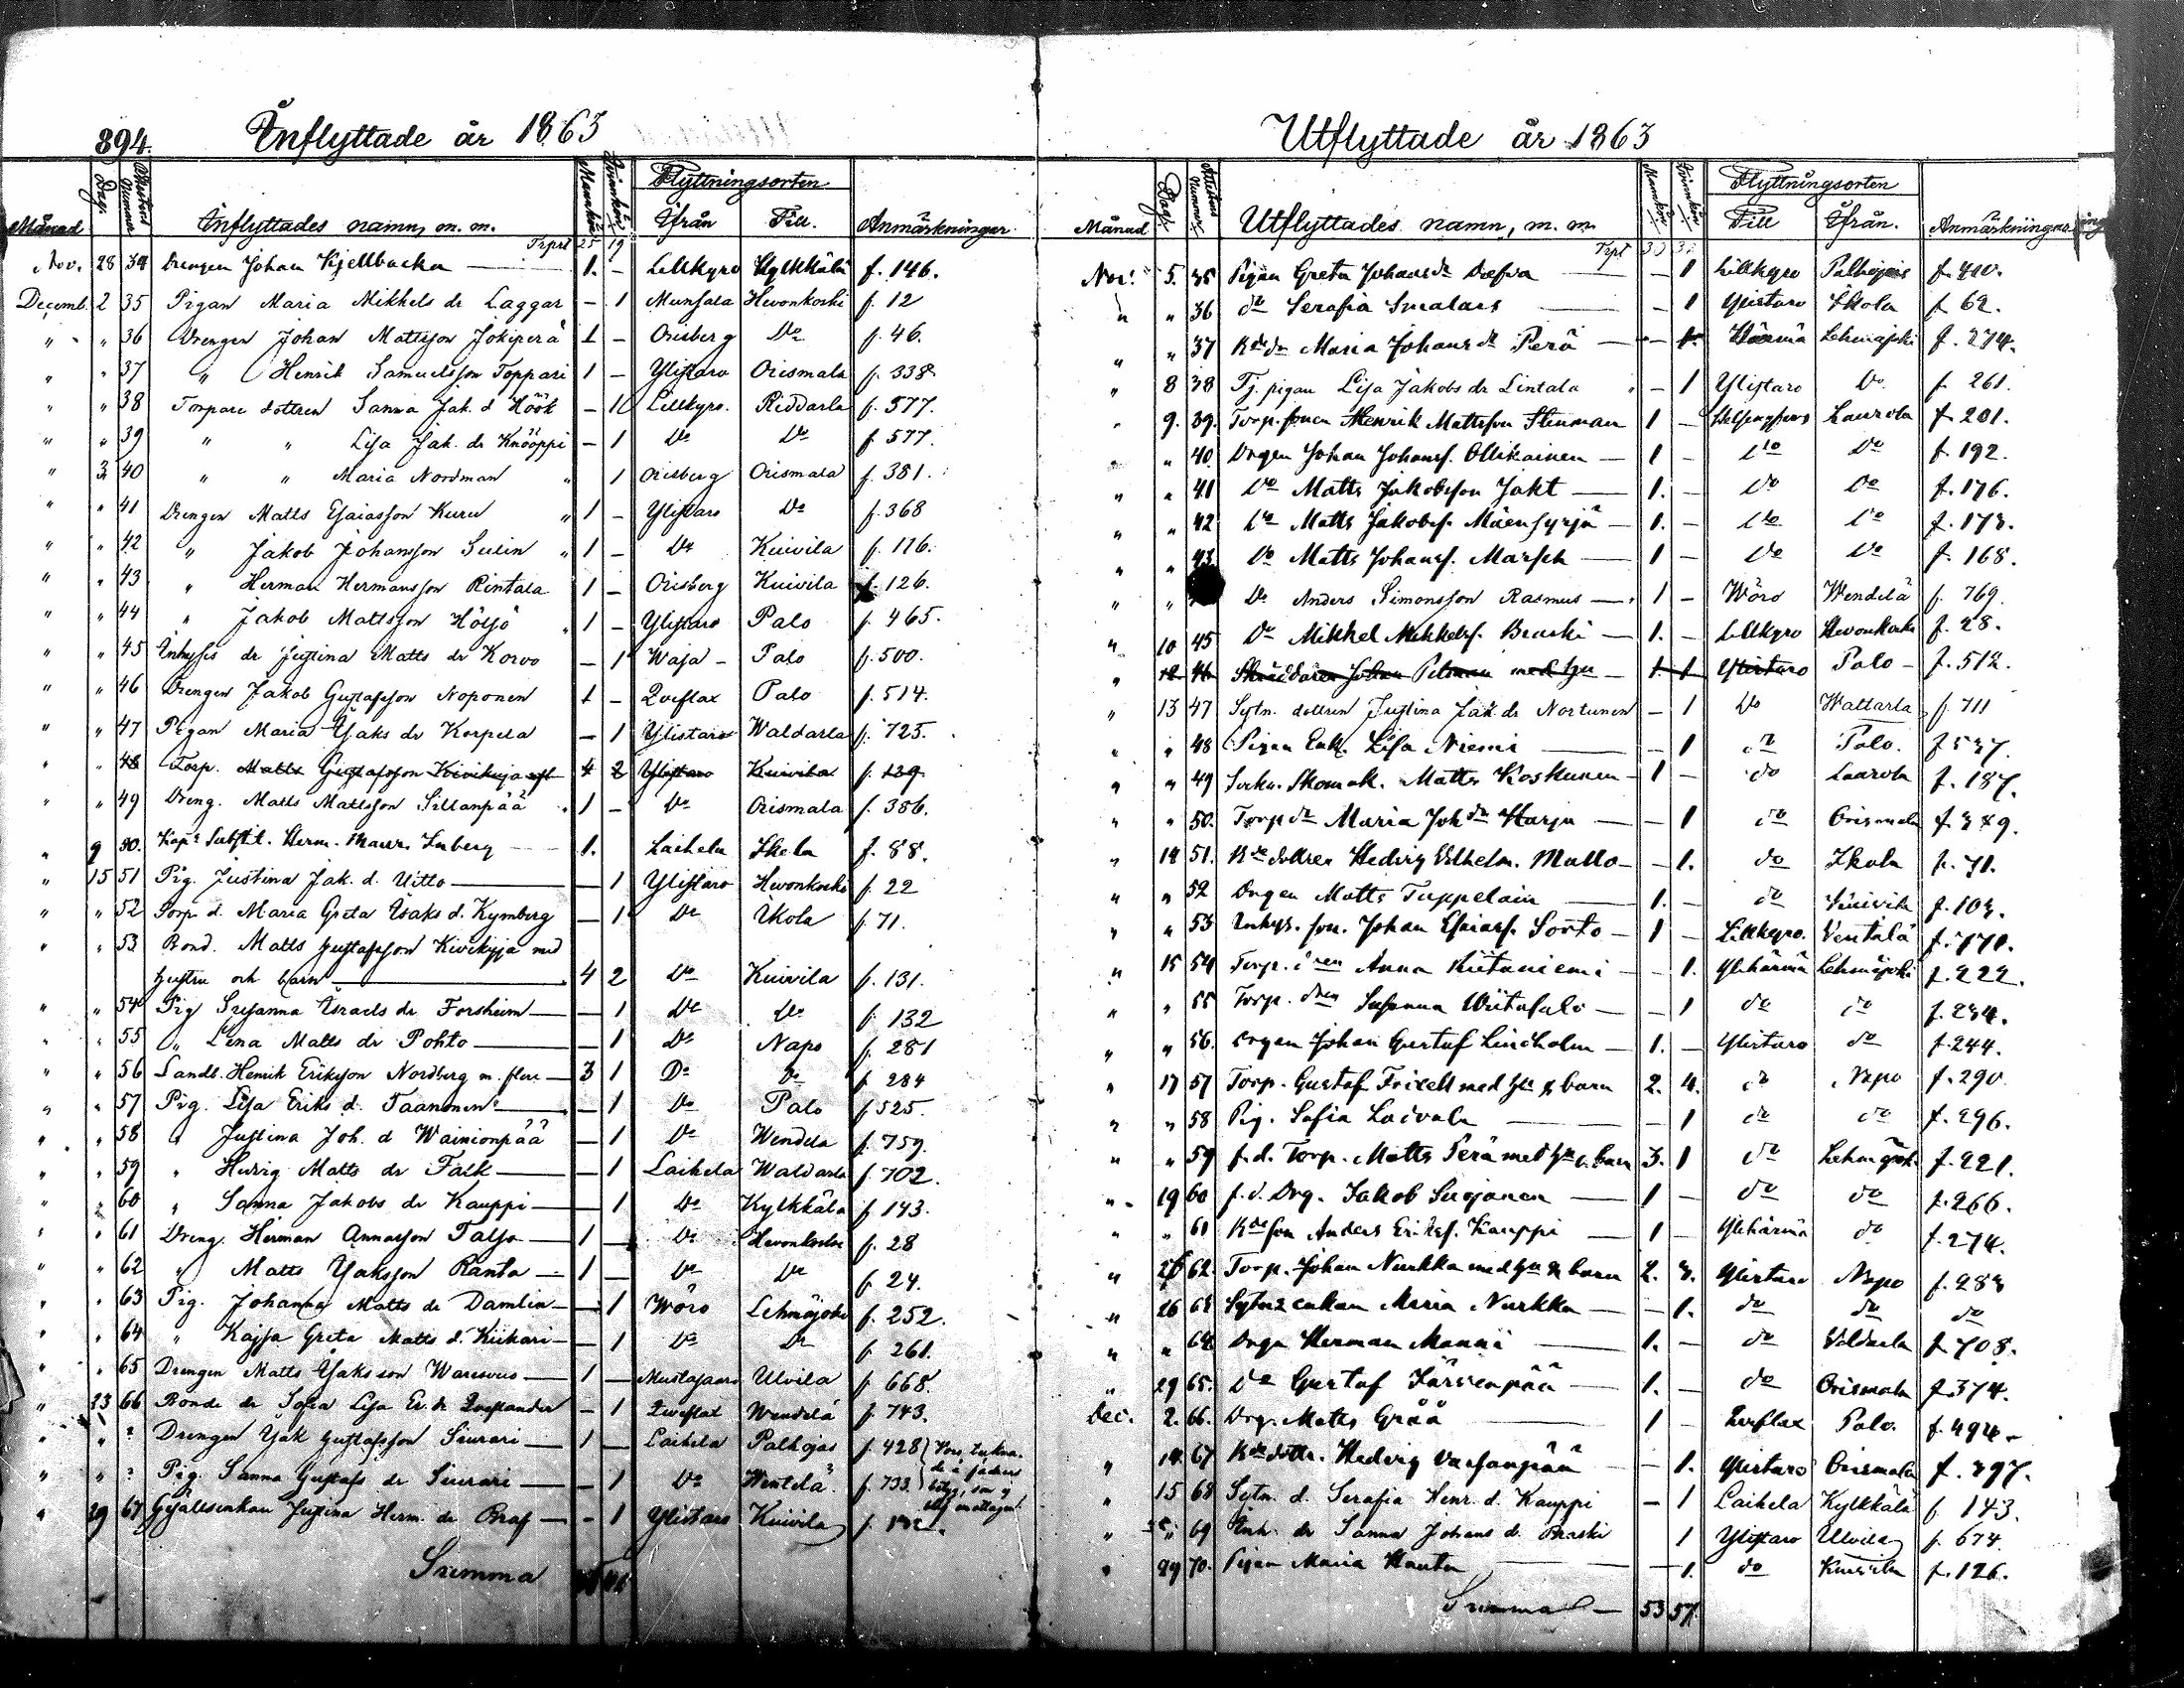 894.
Inflyttade år 1863
Månad Dag. Attestens Nummer Inflyttades namn, m. m. Mankön Qvinkön Flyttningsorten Ifrån Till. Anmärkningar
Trprt 25 19
Nov. 28 34 Drengen Johan Kjellbacka 1. - Lillkyro Kylkkälä f. 146.
Decemb. 2 35 Pigan Maria Mikkels dr Laggar - 1 Munsala Hevonkoski f. 12
" " 36 Drengen Johan Mattsson Jokiperä 1 - Orisberg Do f. 46.
" " 37 " Henrik Samuelsson Toppari 1 - Ylistaro Orismala f. 338
" " 38 Torpare dottren Sanna Jak. d Höök - 1 Lillkyro. Riddarla f. 577.
" " 39 " " Lisa Jak. dr Knööppi - 1 Do Do f. 577.
" 3 40 " " Maria Nordman " 1 Orisberg Orismala f. 381.
" " 41 Drengen Matts Esaiasson Kuru " 1 - Ylistaro Do f. 368
" " 42 " Jakob Johansson Sulin " 1 - Do Kuivila f. 116.
" " 43 " Herman Hermansson Rintala 1 - Orisberg Kuivila f. 126.
" " 44 " Jakob Mattsson Höljö 1 - Ylistaro Palo f. 465.
" " 45 Inhyses dr Justina Matts dr Korvo - 1 Wasa - Palo f. 500.
" " 46 Drengen Jakob Gustafsson Noponen 1 - Qveflax Palo f. 514.
" " 47 Pigan Maria Isaks dr Korpela - 1 Ylistaro Waldarla f. 725.
" " 48 Torp. Matts Gustafsson Kivikuja 4 2 Ylistaro Kuivila f. 139
" " 49 Dreng. Matts Mattsson Sillanpää 1 - Do Orismala f. 386.
" 9 50. Kapl. Substit. Herm. Maur. Inberg 1. Laihela Ikola f. 88.
" 15 51 Pig. Justina Jak. d. Uitto - 1 Ylistaro Hevonkoski f. 22
" " 52 Torp. d. Maria Greta Isaks d. Kymberg - 1 Do Ikola f. 71.
" " 53 Bond. Matts Gustafsson Kivikujja med
hustru och barn 4 2 Do Kuivila f. 131.
" " 54 Pig Susanna Israels dr Forsheim - 1 Do Do f. 132
" " 55 " Lena Matts dr Pohto - 1 Do Napo f. 281
" " 56 Landb. Henrik Eriksson Nordberg m. flere 3 1 Do Do f. 284
" " 57 Pig. Lisa Eriks d. Taanonen - 1 Do Palo f. 525.
" " 58 " Justina Joh. d Wainionpää - 1 Do Wendela f. 759.
" " 59 " Hedvig Matts dr Falk - 1 Laihela Waldarla f. 702.
" " 60 " Sanna Jakobs dr Kauppi - 1 Do Kylkkälä f. 143.
" " 61 Dreng. Herman Annasson Talso 1 - Do Hevonkoski f. 28
" " 62 " Matts Isaksson Ranta 1 - Do Do f. 24.
" " 63 Pig. Johanna Matts dr Damlin - 1 Wörö Lehmäjoki f. 252.
" " 64 " Kajsa Greta Matts d. Kiikari - 1 Do Do f. 261.
" " 65 Drengen Matts Isaksson Waresvuo 1 - Mustasaari Ulvila f. 668.
" 23 66 Bonde dr Sofia Lisa Er. dr Qveflander - 1 Qveflax Wendelä f. 743.
" " ? Drengen Isak Gustafsson Siurari 1 - Laihela Palhojas f. 428
" " ? Pig. Sanna Gustafs dr Siurari - 1 Do Wentelä f. 733.
" 29 67 Gjällsenkan Justina Herm. dr Braf - 1 Ylistaro Kuivila
Summa
Utflyttade år 1863
Månad Dag. Attestens Nummer Utflyttades namn, m. m. Mankön Qvinnkön Flyttningsorten Till Ifrån. Anmärkningar
Trpt
Nov. 5. 35 Pigan Greta Johans dr - 1 Lillkyro Palhojais f. 410.
" " 36 do Serafia Smalars - 1 Ylistaro Ikola f. 62.
" " 37 Maria Johans dr Perä - 1. Härmä Lehmäjoki f. 274.
" 8 38 Tj. pigan Lisa Jakobs dr Lintala - 1 Ylistaro Do f. 261.
" 9. 39. Torp. sonen Henrik Mattsson Stenman 1 - Helsingfors Laurola f. 201.
" " 40. Drgen Johan Johanss. Ollikainen 1 - Do Do f. 192.
" " 41 Do Matts Jakobsson Jakt 1. - Do Do f. 176.
" " 42 Do Matts Jakobss. Mäensyrjä 1. - Do Do f. 173.
" " 43 Do Matts Johanss. Marsch 1 - Do Do f. 168.
" " Do Anders Simonsson Rasmus 1 - Wörö Wendelä f. 769.
" 10 45 Do Mikkel Mikkelss. Braski 1. - Lillkyro Hevonkoski f. 28.
" 12 46 Skräddaren Johan Pelman med hu 1. 1 Ylistaro Palo f. 512.
" 13 47 Sytn. dottren Justina Jak. dr Nortunen - 1 Do Wallarla f. 711
" " 48 Pigan Enk. Lisa Niemi - 1 do Palo. f. 537.
" " 49 Sockn. Skomak. Matts Koskinen 1 - do Laurola f. 187.
" " 50. Torp dr Maria Joh dr Harju - 1 do Orismala f. 349.
" 14 51. dottren Hedvig Vilhelm. Mullo - 1. do Ikola f. 71.
" " 52 Drgen Matts Tuppelain 1. - do Kuivila f. 103.
" " 53 Inhys. son. Johan Esaiass. Sorto 1 - Lillkyro. Ventälä f. 771.
" 15 54 Torp. Anna Kiitaniemi - 1. Ylihärmä Lehmäjoki f. 222.
" " 55 Torp. dren Susanna Wiitasalo - 1 do do f. 234.
" " 56. Drgen Johan Gustaf Lindholm 1. - Ylistaro do f. 244.
" 17 57 Torp. Gustaf Frisell med hu & barn 2. 4. do Napo f. 290
" " 58 Pig. Sofia Laivala - 1 do do f. 296.
" " 59 f. d. Torp. Matts Perä med hu o. barn 3. 1 do Lehmäjoki f. 221.
" 19 60 f. d. Drg. Jakob Surjanen 1 - do do f. 266.
" " 61 son Anders Erikss. Kauppi 1 - Ylihärmä do f. 274.
" 62. Torp. Johan Nurkka med hu & barn 2. 3. Ylistaro Napo f. 283
" 26 63 enkan Maria Nurkka - 1. do do do
" " 64 Drgn Herman Manni 1. - do Valdarla f. 708.
" 29 65. Do Gustaf Järvenpää 1. - do Orismala f. 374.
Dec. 2. 66. Drg. Matts Grää 1 - Qveflax Palo. f. 494
" 14 67 dottr. Hedvig - 1. Ylistaro Orismala f. 397.
" 15 68 Sytn. d. Serafia Henr. d. Kauppi - 1 Laihela Kylkkälä f. 143.
" " 69 Inh. dr Sanna Johans d. Braski 1 Ylistaro Ulvila f. 674.
" 29 70. Pigan Maria Hauta - 1. do Kuivila f. 126.
Summa 53 57.